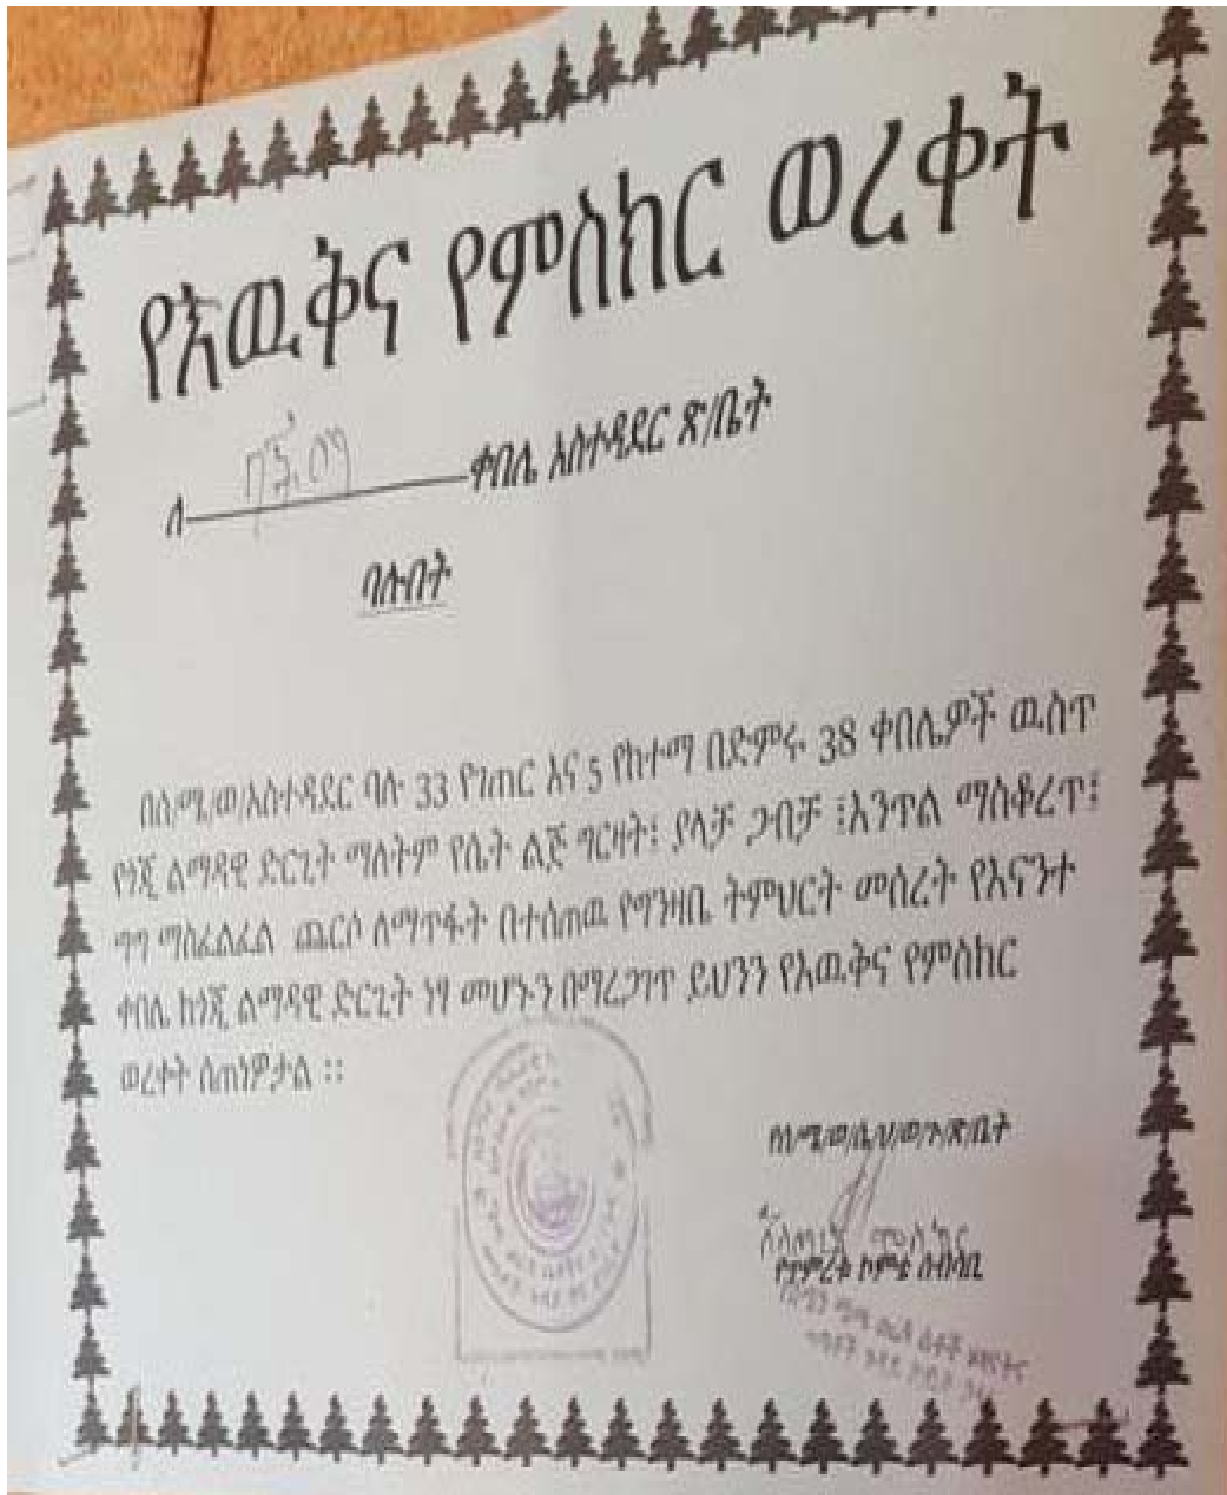 የእዉቅና የምስክር ወረቀት
ለ ቀበሌ አስተዳደር ጽ/ቤት
ባሉበት
በሰ/ሜ/ወ/አስተዳደር ባሉ 33 የገጠር እና 5 የከተማ በድምሩ 38 ቀበሌዎች ዉስጥ
የጎጂ ልማዳዊ ድርጊት ማለትም የሴት ልጅ ግርዛት፤ ያላቻ ጋብቻ ፤እንጥል ማስቆረጥ፤
ግግ ማስፈልፈል ጨርሶ ለማጥፋት በተሰጠዉ የግንዛቤ ትምህርት መሰረት የእናንተ
ቀበሌ ከጎጂ ልማዳዊ ድርጊት ነፃ መሆኑን በማረጋገጥ ይህንን የእዉቅና የምስክር
ወረቀት ሰጠነዎታል ፡፡
የጥምረቱ ኮምቴ ሰብሳቢ